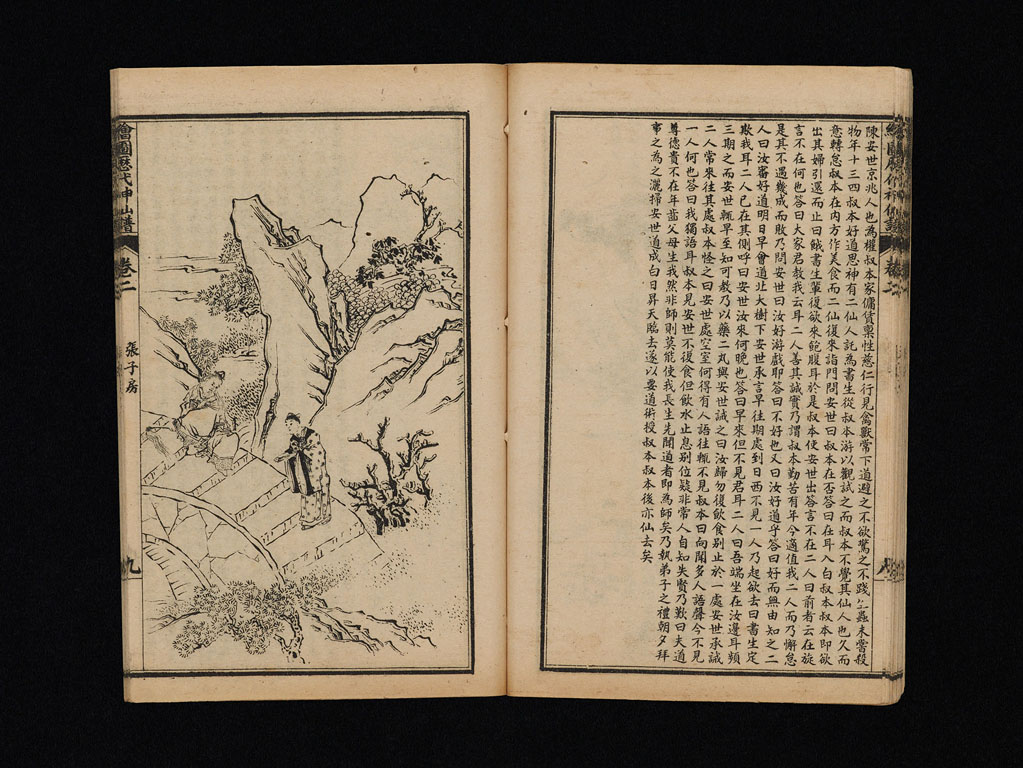 陳安世京兆人也為權叔本家傭賃稟性慈仁行見禽獸常下道避之不欲驚之不踐虫蟲未嘗殺
物年十三四叔本好道思神有二仙人託為書生從叔本游以觀試之而叔本不覺其仙人也久而
意轉怠叔本在內方作美食而二仙復來詣門問安世曰叔本在否答曰在耳入白叔本叔本即欲
出其婦引還而止曰餓書生輩復欲來飽腹耳於是叔本使安世出答言不在二人曰前者云在旋
言不在何也答曰大家君教我云耳二人善其誠實乃謂叔本勤苦有年今適值我二人而乃懈怠
是其不遇幾成而敗乃問安世曰汝好游戲耶答曰不好也又曰汝好道乎答曰好而無由知之二
人曰汝審好道明日早會道北大樹下安世承言早往期處到日西不見一人乃起欲去曰書生定
欺我耳二人已在其側呼曰安世汝來何晚也答曰早來但不見君耳二人曰吾端坐在汝邊耳頻
三期之而安世輒早至知可教乃以藥二丸與安世誡之曰汝歸勿復飲食別止於一處安世承誡
二人常來往其處叔本怪之曰安世處空室何得有人語往輒不見叔本曰向聞多人語聲今不見
一人何也答曰我獨語耳叔本見安世不復食但飲水止息別位疑非常人自知失賢乃歎曰夫道
尊德貴不在年齒父母生我然非師則莫能使我長生先聞道者即為師矣乃執弟子之禮朝夕拜
事之為之灑掃安世道成白日昇天臨去遂以要道術授叔本叔本後亦仙去矣
繪圖歷代神仙譜
卷二
張子房
九